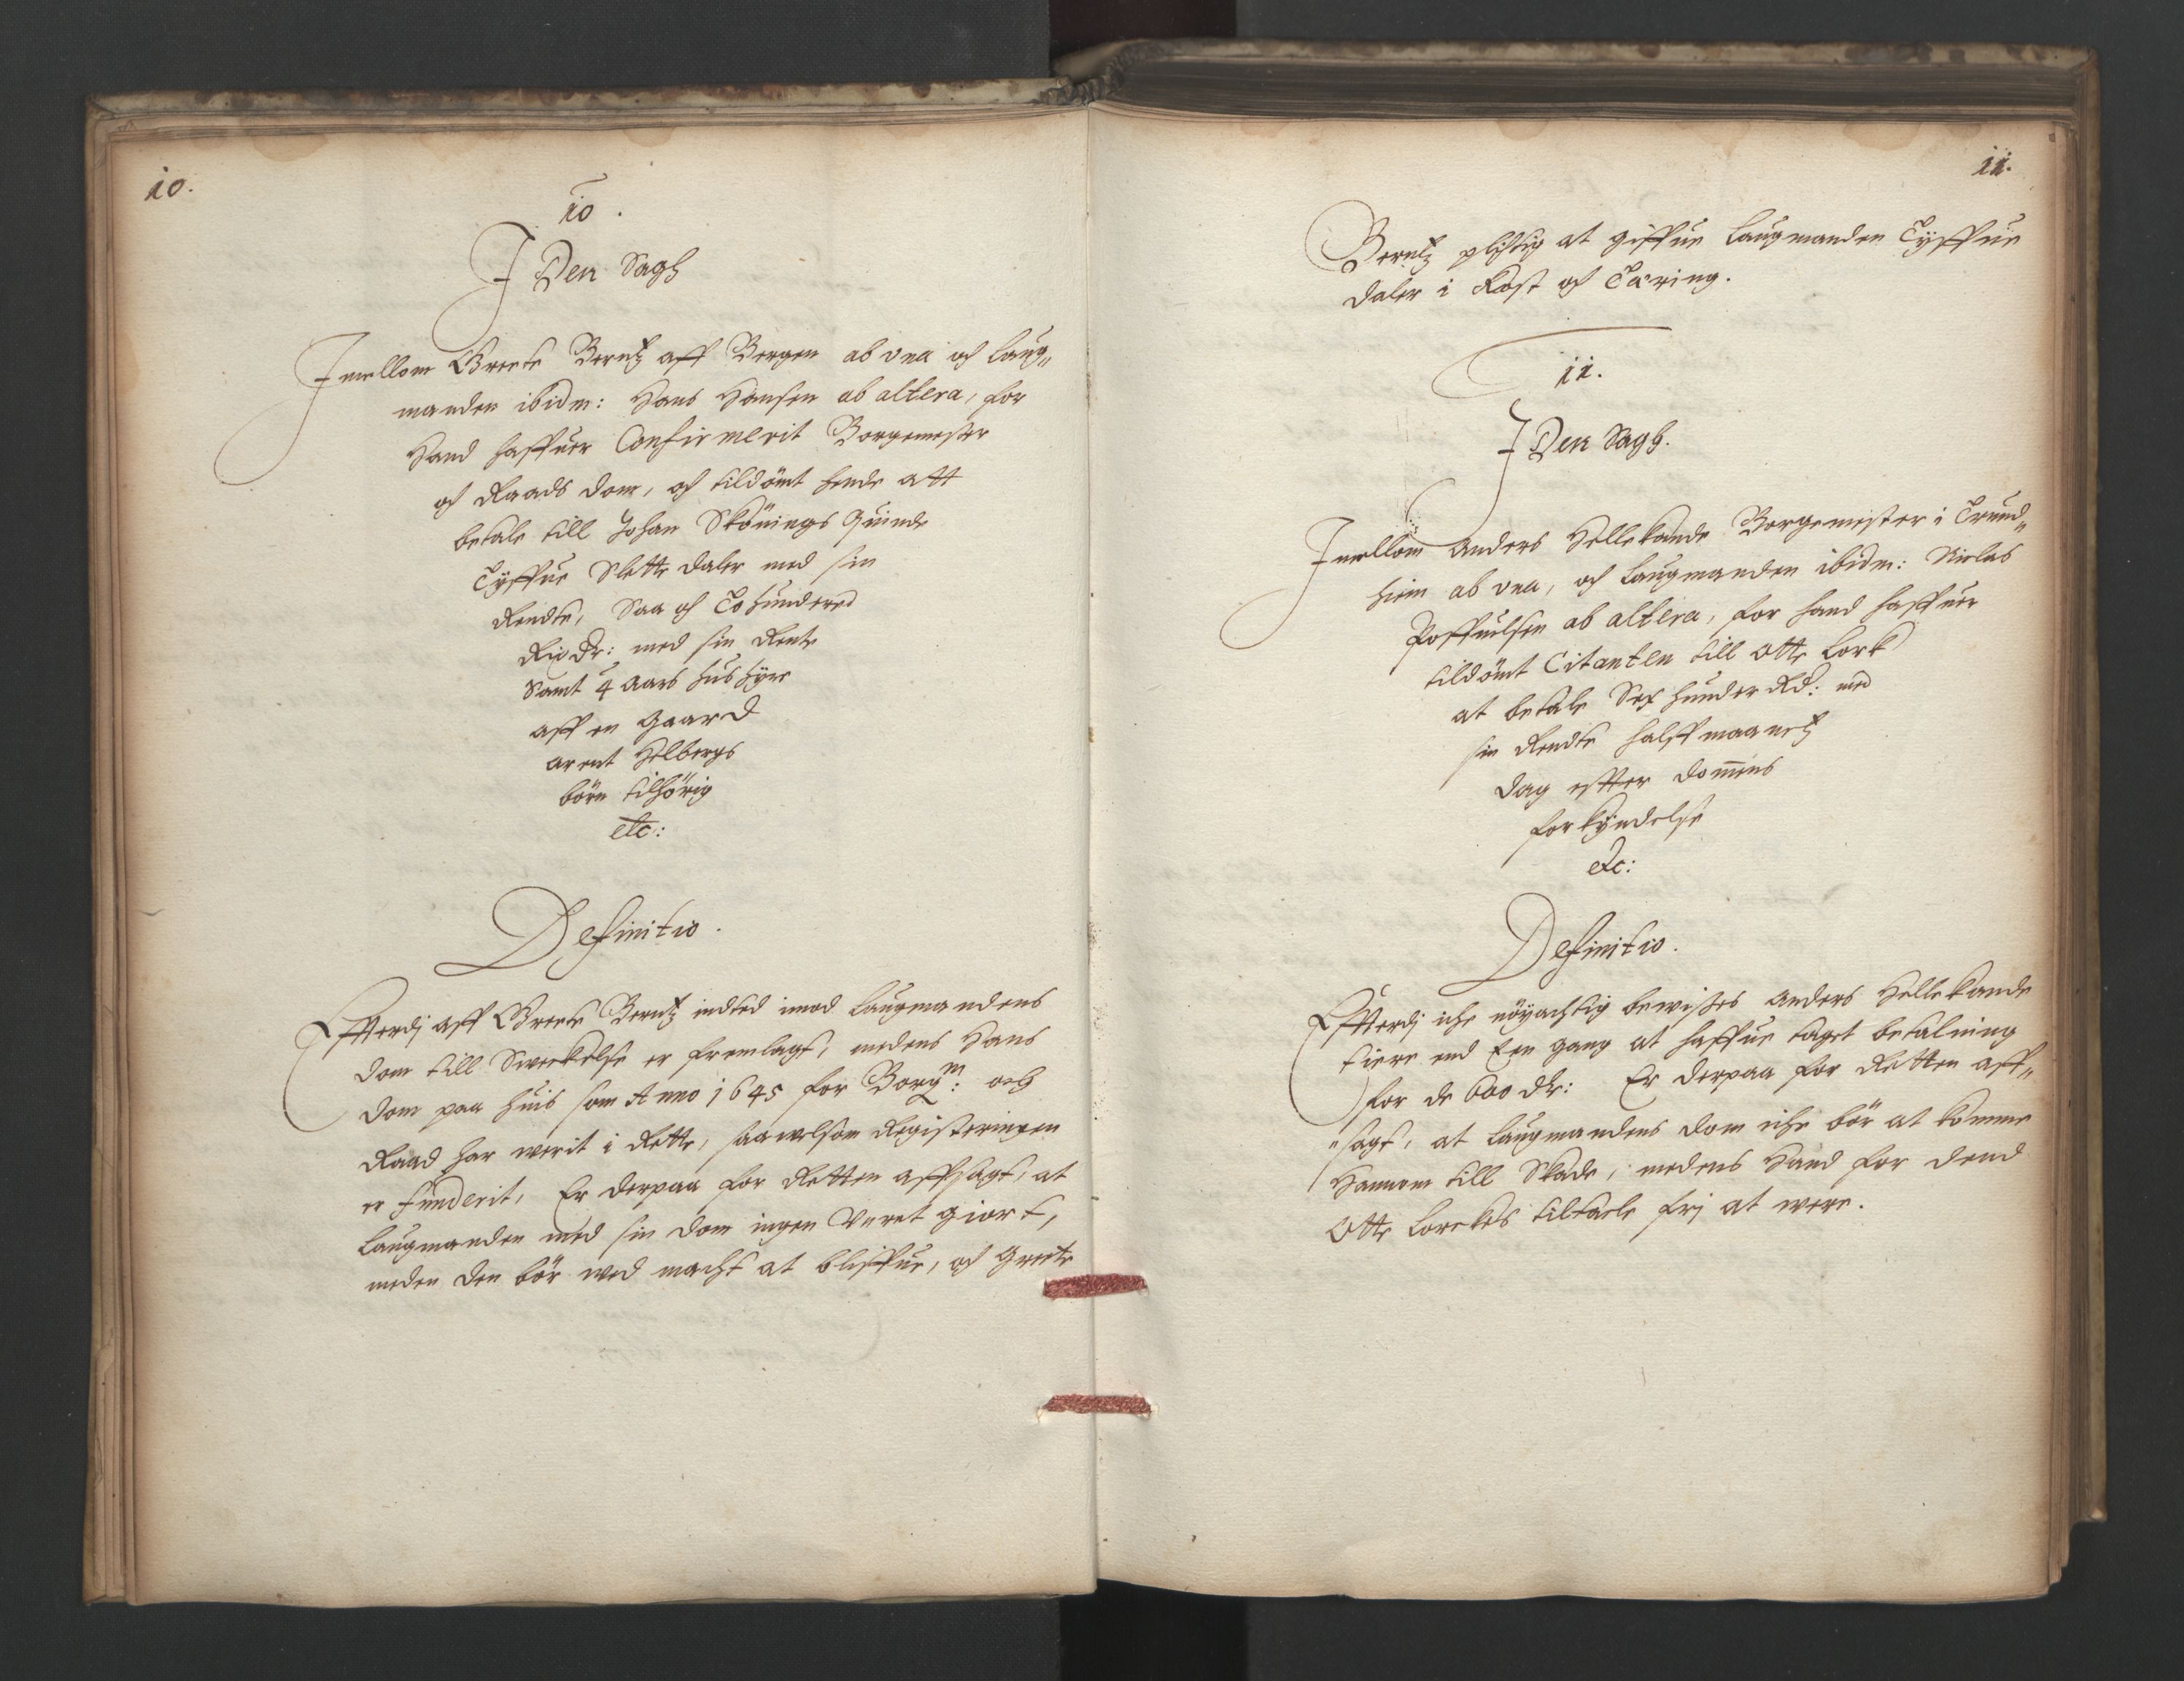 10.
10.
I Den Sagh
Imellom Greete Berntz aff Bergen ab una oc Laug„
manden ibidm: Hans Hansen ab altera, for
Hand haffuer Confirmerit Borgemester
oc Raads dom, oc tildömt hende att
betale till Johan Skönings Quinde
Tyffue Slette daler med sin
Rendte, Saa oc To hundered
Rix Dr: med sin Rente
Samt 4 Aars huus hÿre
aff en Gaard
Arent Helbergs
börn tilhörig
etc:
Definitio.
Effterdj aff Greete Berntz indted imod Laugmandens
dom till Sveckelse er fremlagt, medens Hans
dom paa huis som Anno 1645 for Borgm: och
Raad har verit i Rette, saavelsom Registeringen
er funderit, Er derpaa for Retten affsagt, at
Laugmanden med sin dom ingen Uuret giort,
meden den bör ved macht at bliffue, oc Greete
11.
Berntz plichtig at giffue Laugmanden Tyffue
daler i Kost oc Tæring.
11.
I Den Sagh.
Imellom Anders Hellekande Borgemester i Trund„
hiem ab una, oc Laugmanden ibidm: Nielas
Poffuelsen ab altera, for hand haffuer
tildömt Citanten till Otte Lork
at betale Sex hunder Rd: med
sin Rendte halff maanetz
dag effter dommens
forkÿndelse
etc:
Definitio.
Effterdj iche nöyachtig bevisses Anders Hellekande
fiere end Een gang at haffue taget betalning
for de 600 dlr: Er derpaa for Retten aff„
„sagt, at Laugmandens dom iche bör at komme
Hannem till Skade, medens Hand for dend
Otte Lorckes tiltaele frj at vere.